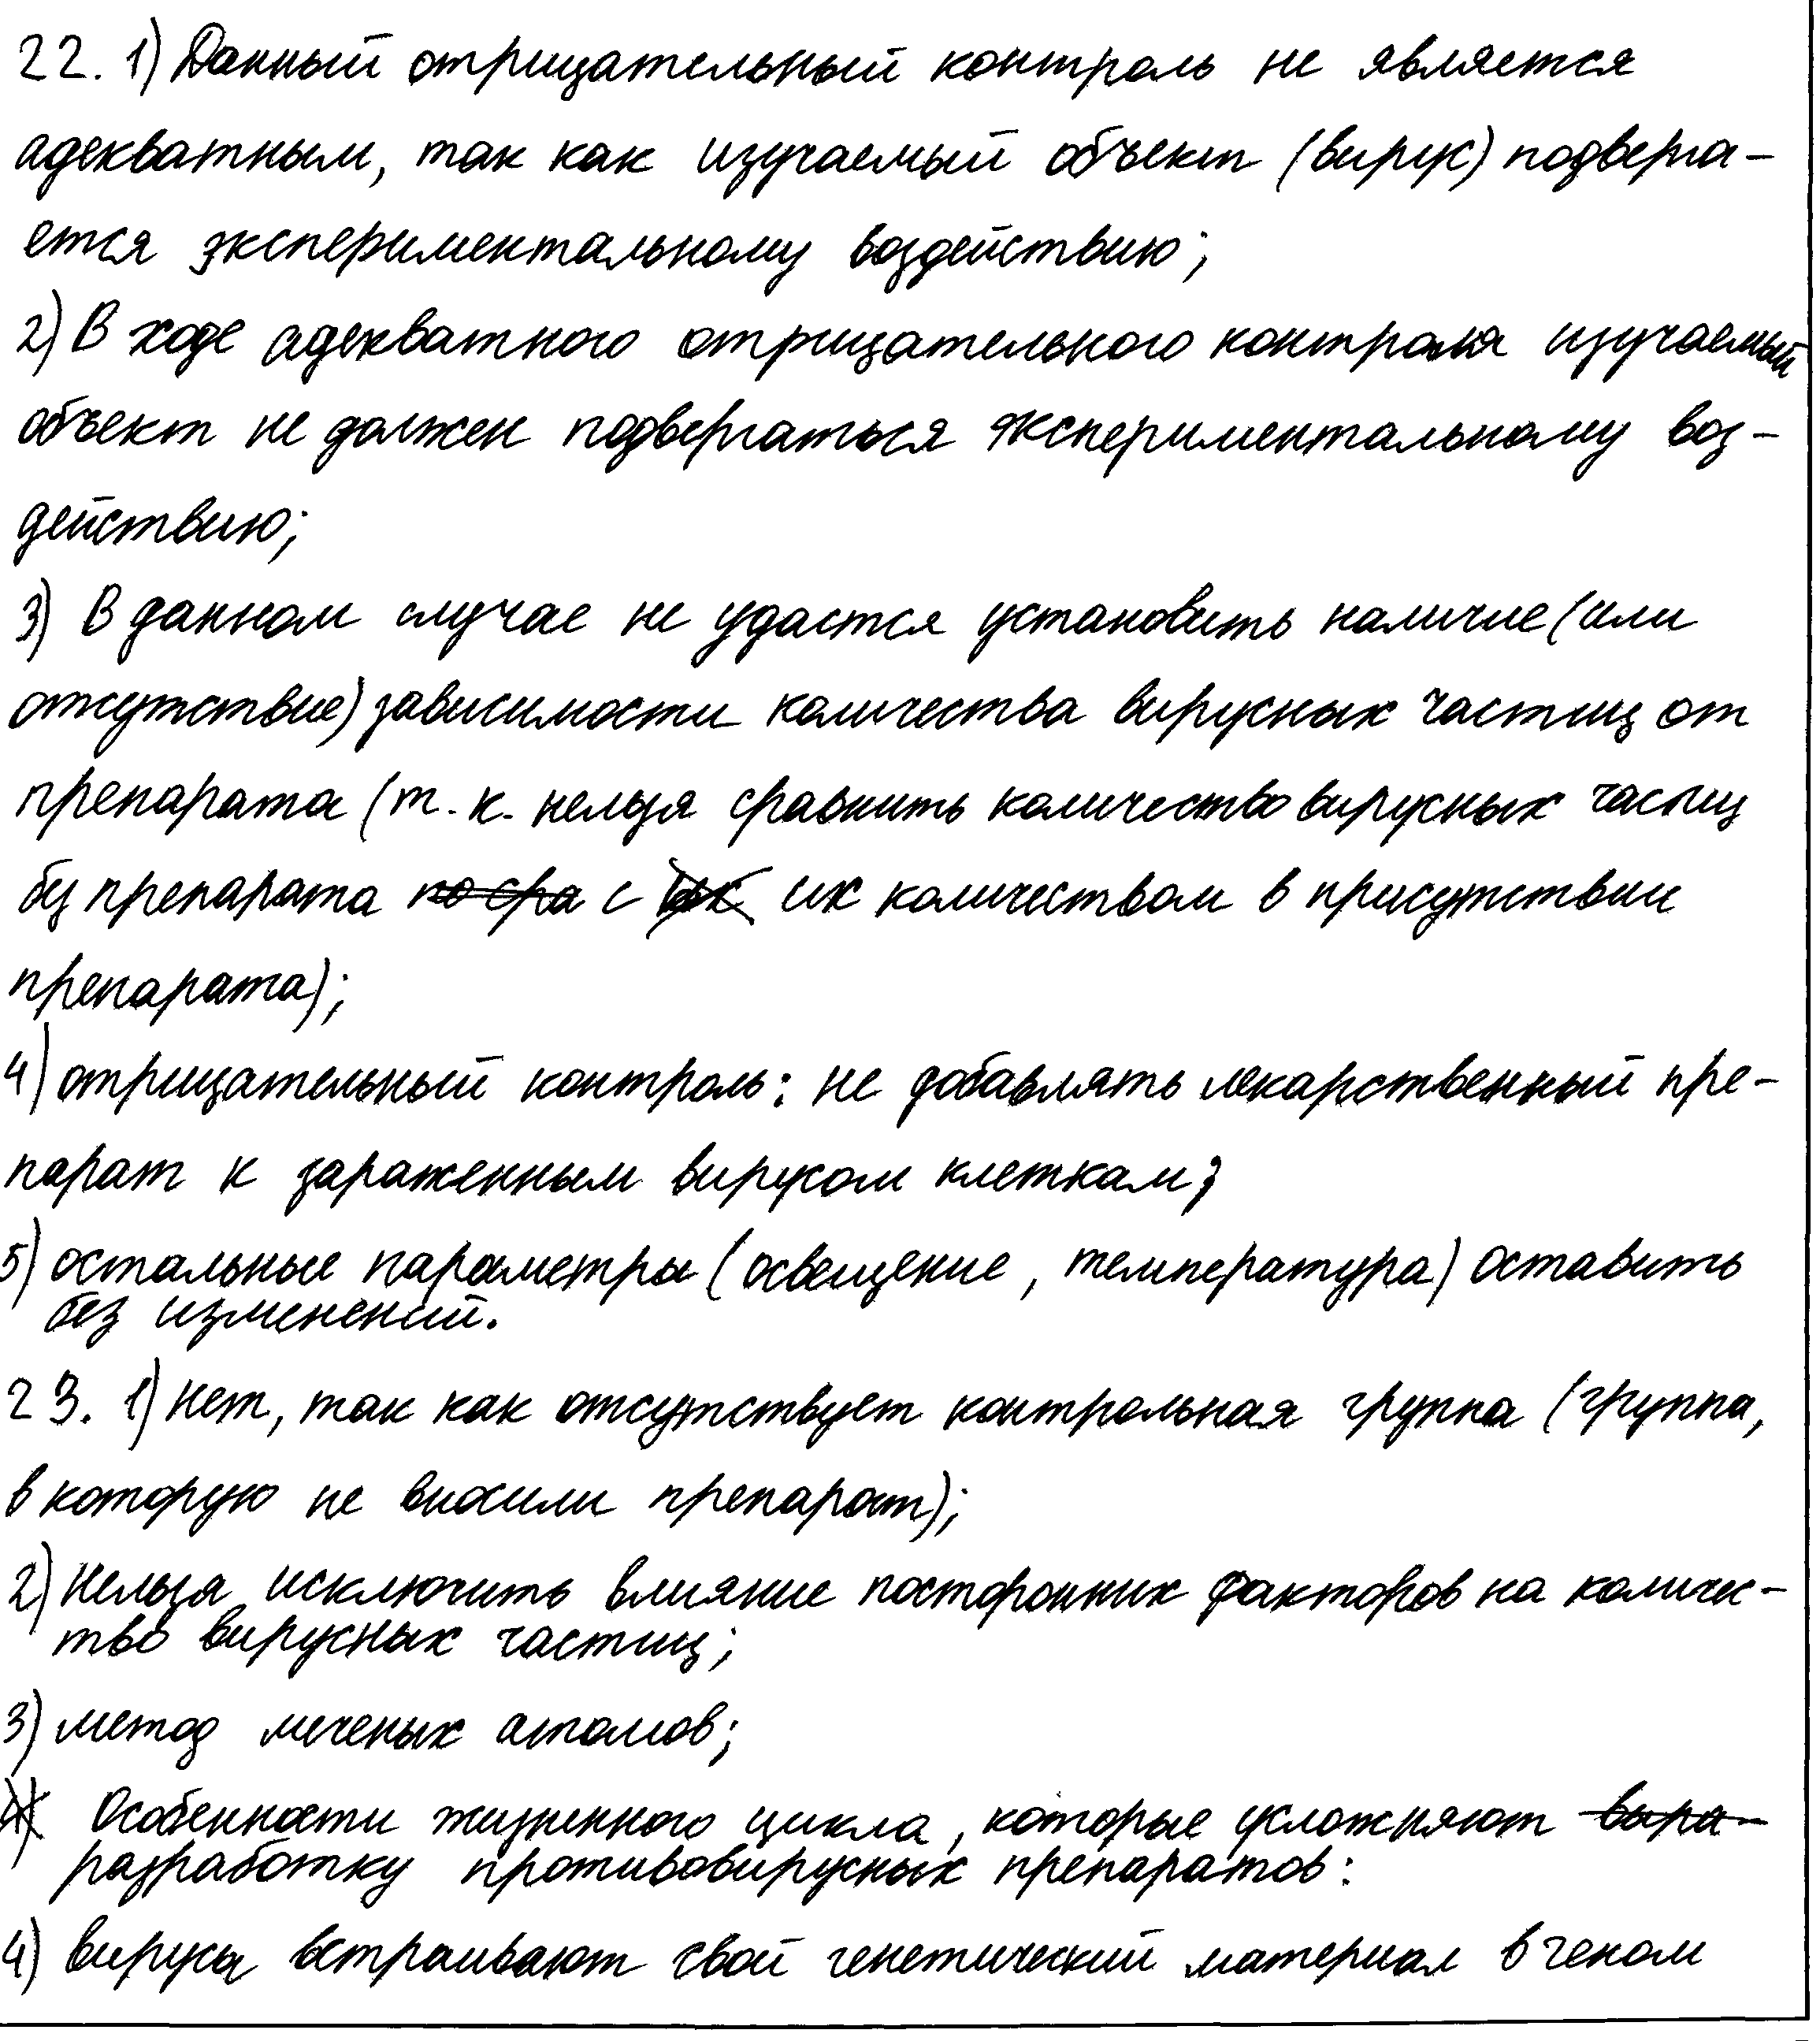 22. 1) Данный отрицательный контроль не является
адекватным, так как изучаемый объект (вирус) подверга-
ется экспериментальному воздействию;
2) В ходе адекватного отрицательного контроля изучаемый
объект не должен подвергаться экспериментальному воз-
действию;
3) В данном случае не удастся установить наличие (или
отсутствие) зависимости количества вирусных частиц от
препарата (т. к. нельзя сравнить количество вирусных частиц
без препарата по сра с их их количеством в присутствии
препарата);
4) отрицательный контроль: не добавлять лекарственный пре-
парат к зараженным вирусом клеткам;
5) остальные параметры (освещение, температура) оставить
без изменений.
23. 1) Нет, так как отсутствует контрольная группа (группа,
в которую не вносили препарат);
2) Нельзя исключить влияние посторонних факторов на количес-
тво вирусных частиц;
3) метод меченых атомов;
4) Особенности жизненного цикла, которые усложняют выра-
разработку противовирусных препаратов:
4) вирусы встраивают свой генетический материал в геном